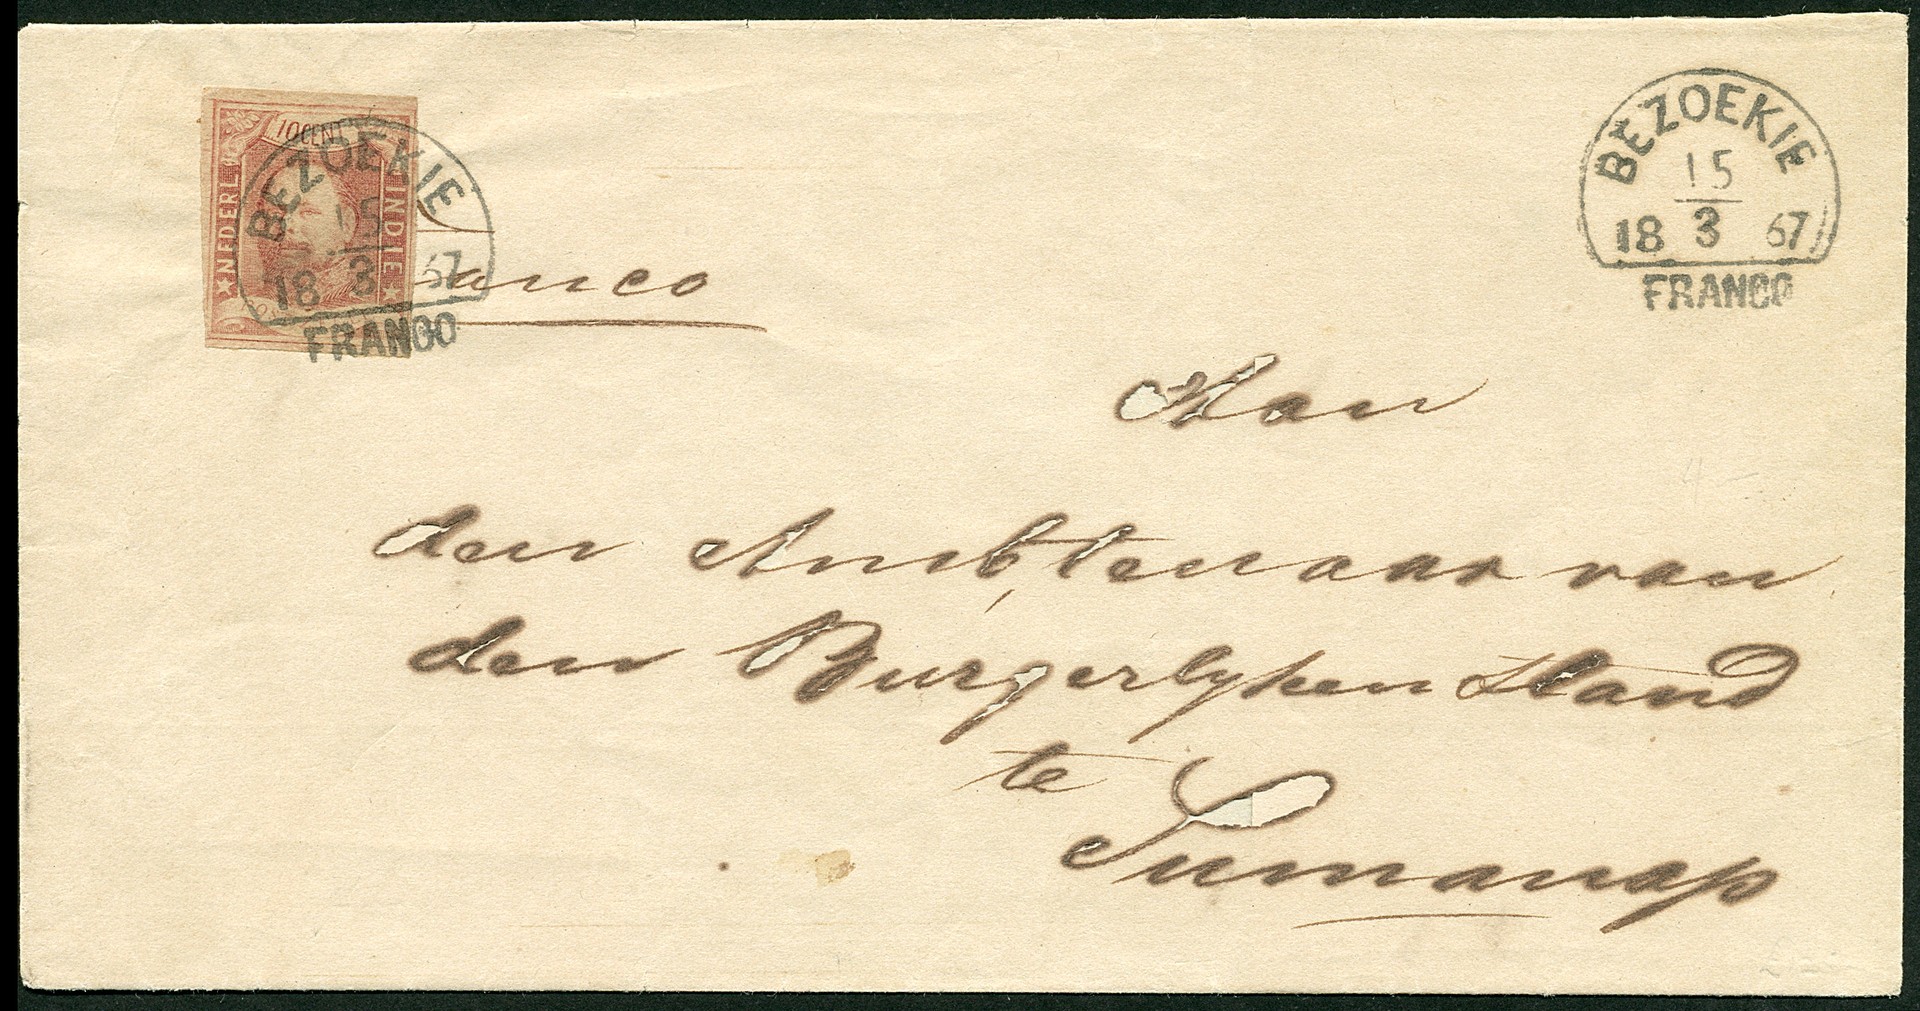 10 CENT
NEDERL
INDIE
BEZOEKIE
15
18 3 67
FRANCO
BEZOEKIE
15
18 3 67
FRANCO
anco
Aan
den Ambtenaar van
den Burgerlyken Stand
te
Sumanap